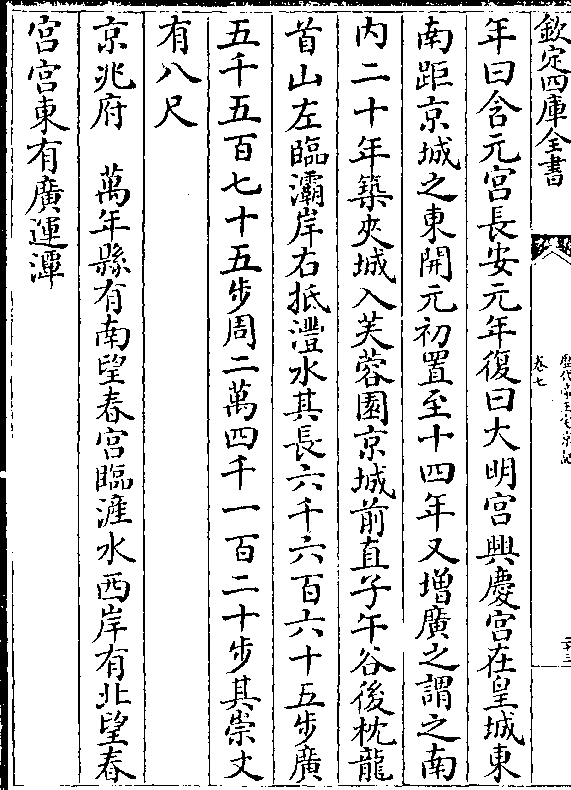 欽定四庫全書
歷代帝王宅京記
卷七
二十三
年曰含元宫長安元年復曰大明宫興慶宫在皇城東
南距京城之東開元初置至十四年又增廣之謂之南
内二十年築夾城入芙蓉園京城前直子午谷後枕龍
首山左臨灞岸右抵灃水其長六千六百六十五步廣
五千五百七十五步周二萬四千一百二十步其崇丈
有八尺
京兆府　萬年縣有南望春宫臨滻水西岸有北望春
宫宫東有廣運潭